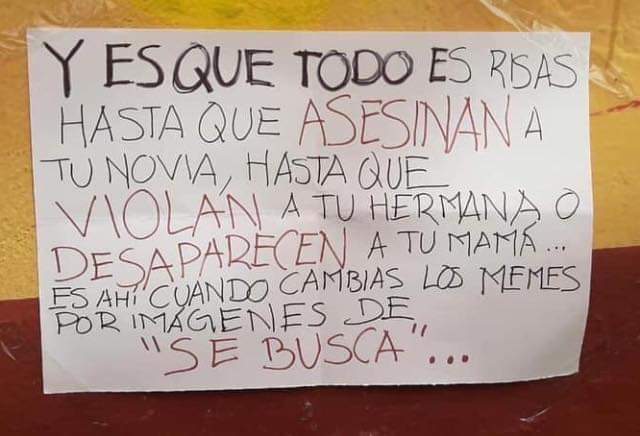 Y ES QUE TODO ES RISAS
HASTA QUE ASESINAN A
TU NOVIA, HASTA QUE
VIOLAN A TU HERMANA O
DESAPARECEN A TU MAMÁ...
ES AHÍ CUANDO CAMBIAS LOS MEMES
POR IMÁGENES DE
"SE BUSCA"...